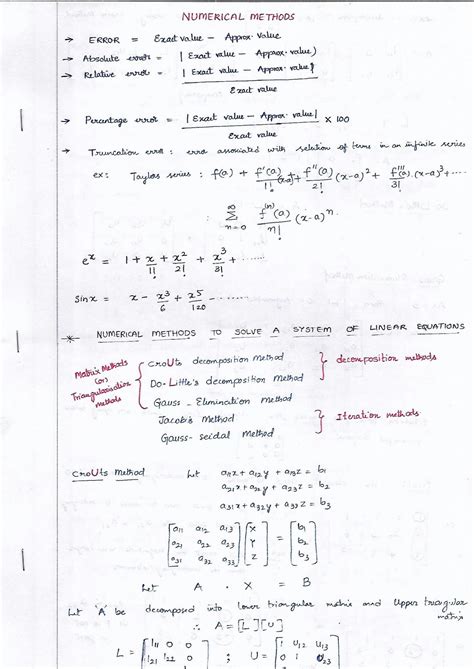 NUMERICAL METHODS
→ ERROR = Exact value - Approx. value
→ Absolute error = | Exact value - Approx. value)
→ Relative error = | Exact value - Approx. value|
Exact value
→ Percentage error = | Exact value - Approx. value| × 100
Exact value
→ Truncation error : error associated with selution of terms in an infinite series
ex: Taylors series : f(a) + f'(a)/1! (x-a) + f''(a)/2! (x-a)² + f'''(a)/3! (x-a)³ + ....
∞ Σ n=0 f⁽ⁿ⁾(a)/n! (x-a)ⁿ
eˣ = 1 + x/1! + x²/2! + x³/3! + .......
sinx = x - x³/6 + x⁵/120 - .......
* NUMERICAL METHODS TO SOLVE A SYSTEM OF LINEAR EQUATIONS
Matrix Methods (or) Triangularisation methods
croUts decomposition method
Do-Little's decomposition method
} decomposition methods
Gauss - Elimination method
Jacobi's Method
Gauss-seidal Method
} Iteration methods
CroUts Method Let a₁₁x + a₁₂y + a₁₃z = b₁
a₂₁x + a₂₂y + a₂₃z = b₂
a₃₁x + a₃₂y + a₃₃z = b₃
[a₁₁ a₁₂ a₁₃] [x] = [b₁]
[a₂₁ a₂₂ a₂₃] [y] [b₂]
[a₃₁ a₃₂ a₃₃] [z] [b₃]
Let A . X = B
Let 'A' be decomposed into lower triangular matrix and Upper triangular matrix
∴ A = [L][U]
L = [l₁₁ 0 0 ; U = [1 U₁₂ U₁₃
l₂₁ l₂₂ 0 0 1 U₂₃